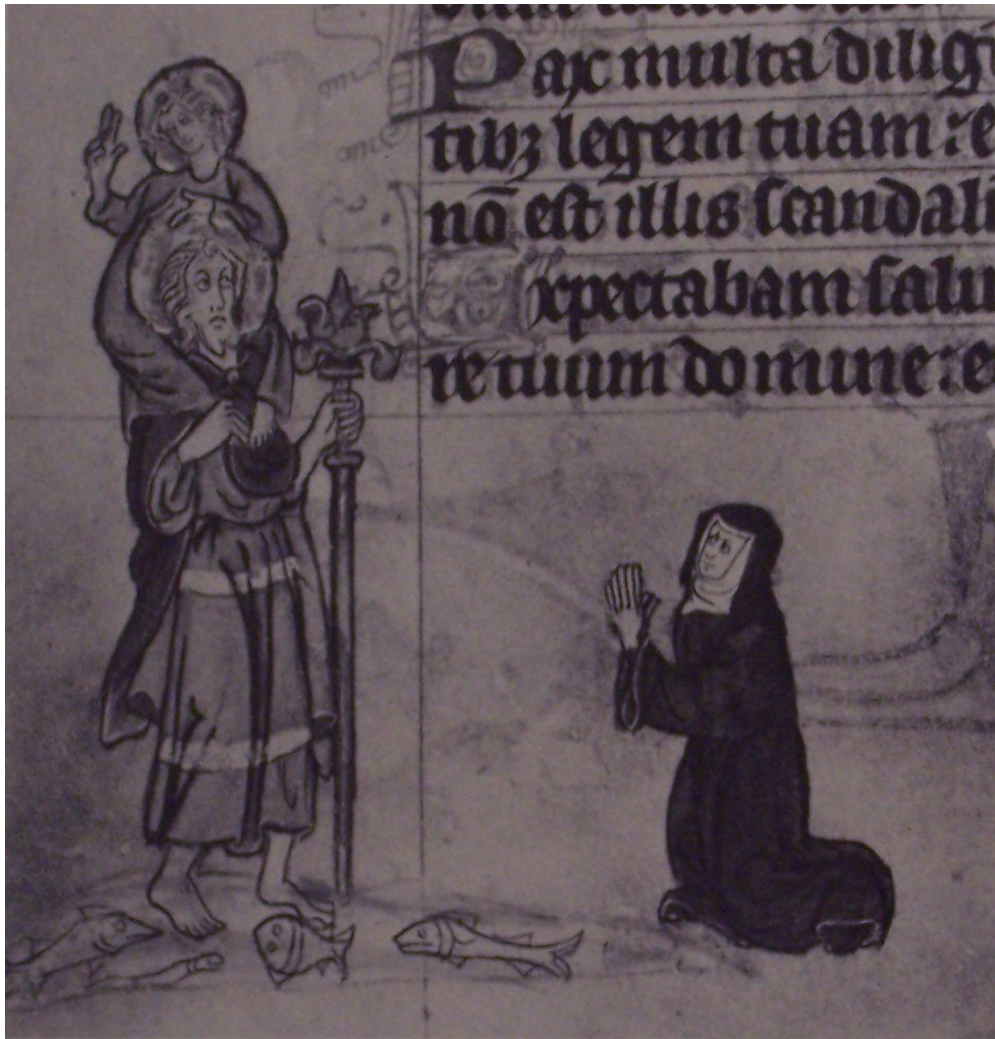 Pax multa dilig
tibꝫ legem tuam : e
nō est illis scandal
Expectabam salu
re tuum domine : e